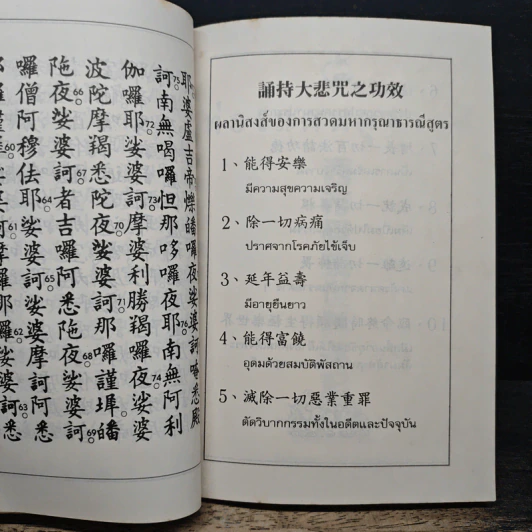 耶婆盧吉帝爍皤囉夜76娑婆訶唵悉殿
訶75南無喝囉怛那哆囉夜耶南無阿利
伽囉耶娑婆訶73摩婆利勝羯囉夜74娑婆
波陀摩羯悉陀夜70娑婆訶71那囉謹墀皤
陁夜66娑婆訶者吉囉阿悉陁夜68娑婆訶69
囉僧阿穆佉耶64娑婆訶65娑婆摩訶阿悉
誦持大悲咒之功效
ผลานิสงส์ของการสวดมหากรุณาธารณีสูตร
1、能得安樂
มีความสุขความเจริญ
2、除一切病痛
ปราศจากโรคภัยไข้เจ็บ
3、延年益壽
มีอายุยืนยาว
4、能得富饒
อุดมด้วยสมบัติพัสถาน
5、滅除一切惡業重罪
ตัดวิบากกรรมทั้งในอดีตและปัจจุบัน